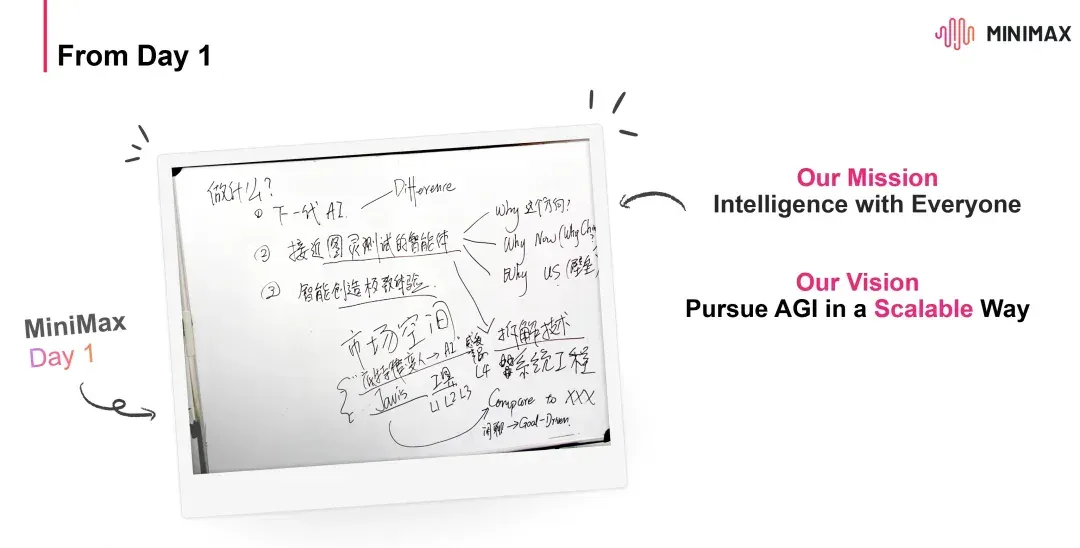 From Day 1
MINIMAX
做什么?
① 下一代 AI.
Difference
② 接近图灵测试的智能体
Why 这个方向?
Why Now (Why Cha
Why US (壁垒)
③ 智能创造极致体验.
市场空间
拆解技术
系统工程
变人→AI
L4
Javis 工具
L1 L2 L3
Compare to XXX
闲聊→Goal-Driven.
MiniMax
Day 1
Our Mission
Intelligence with Everyone
Our Vision
Pursue AGI in a Scalable Way